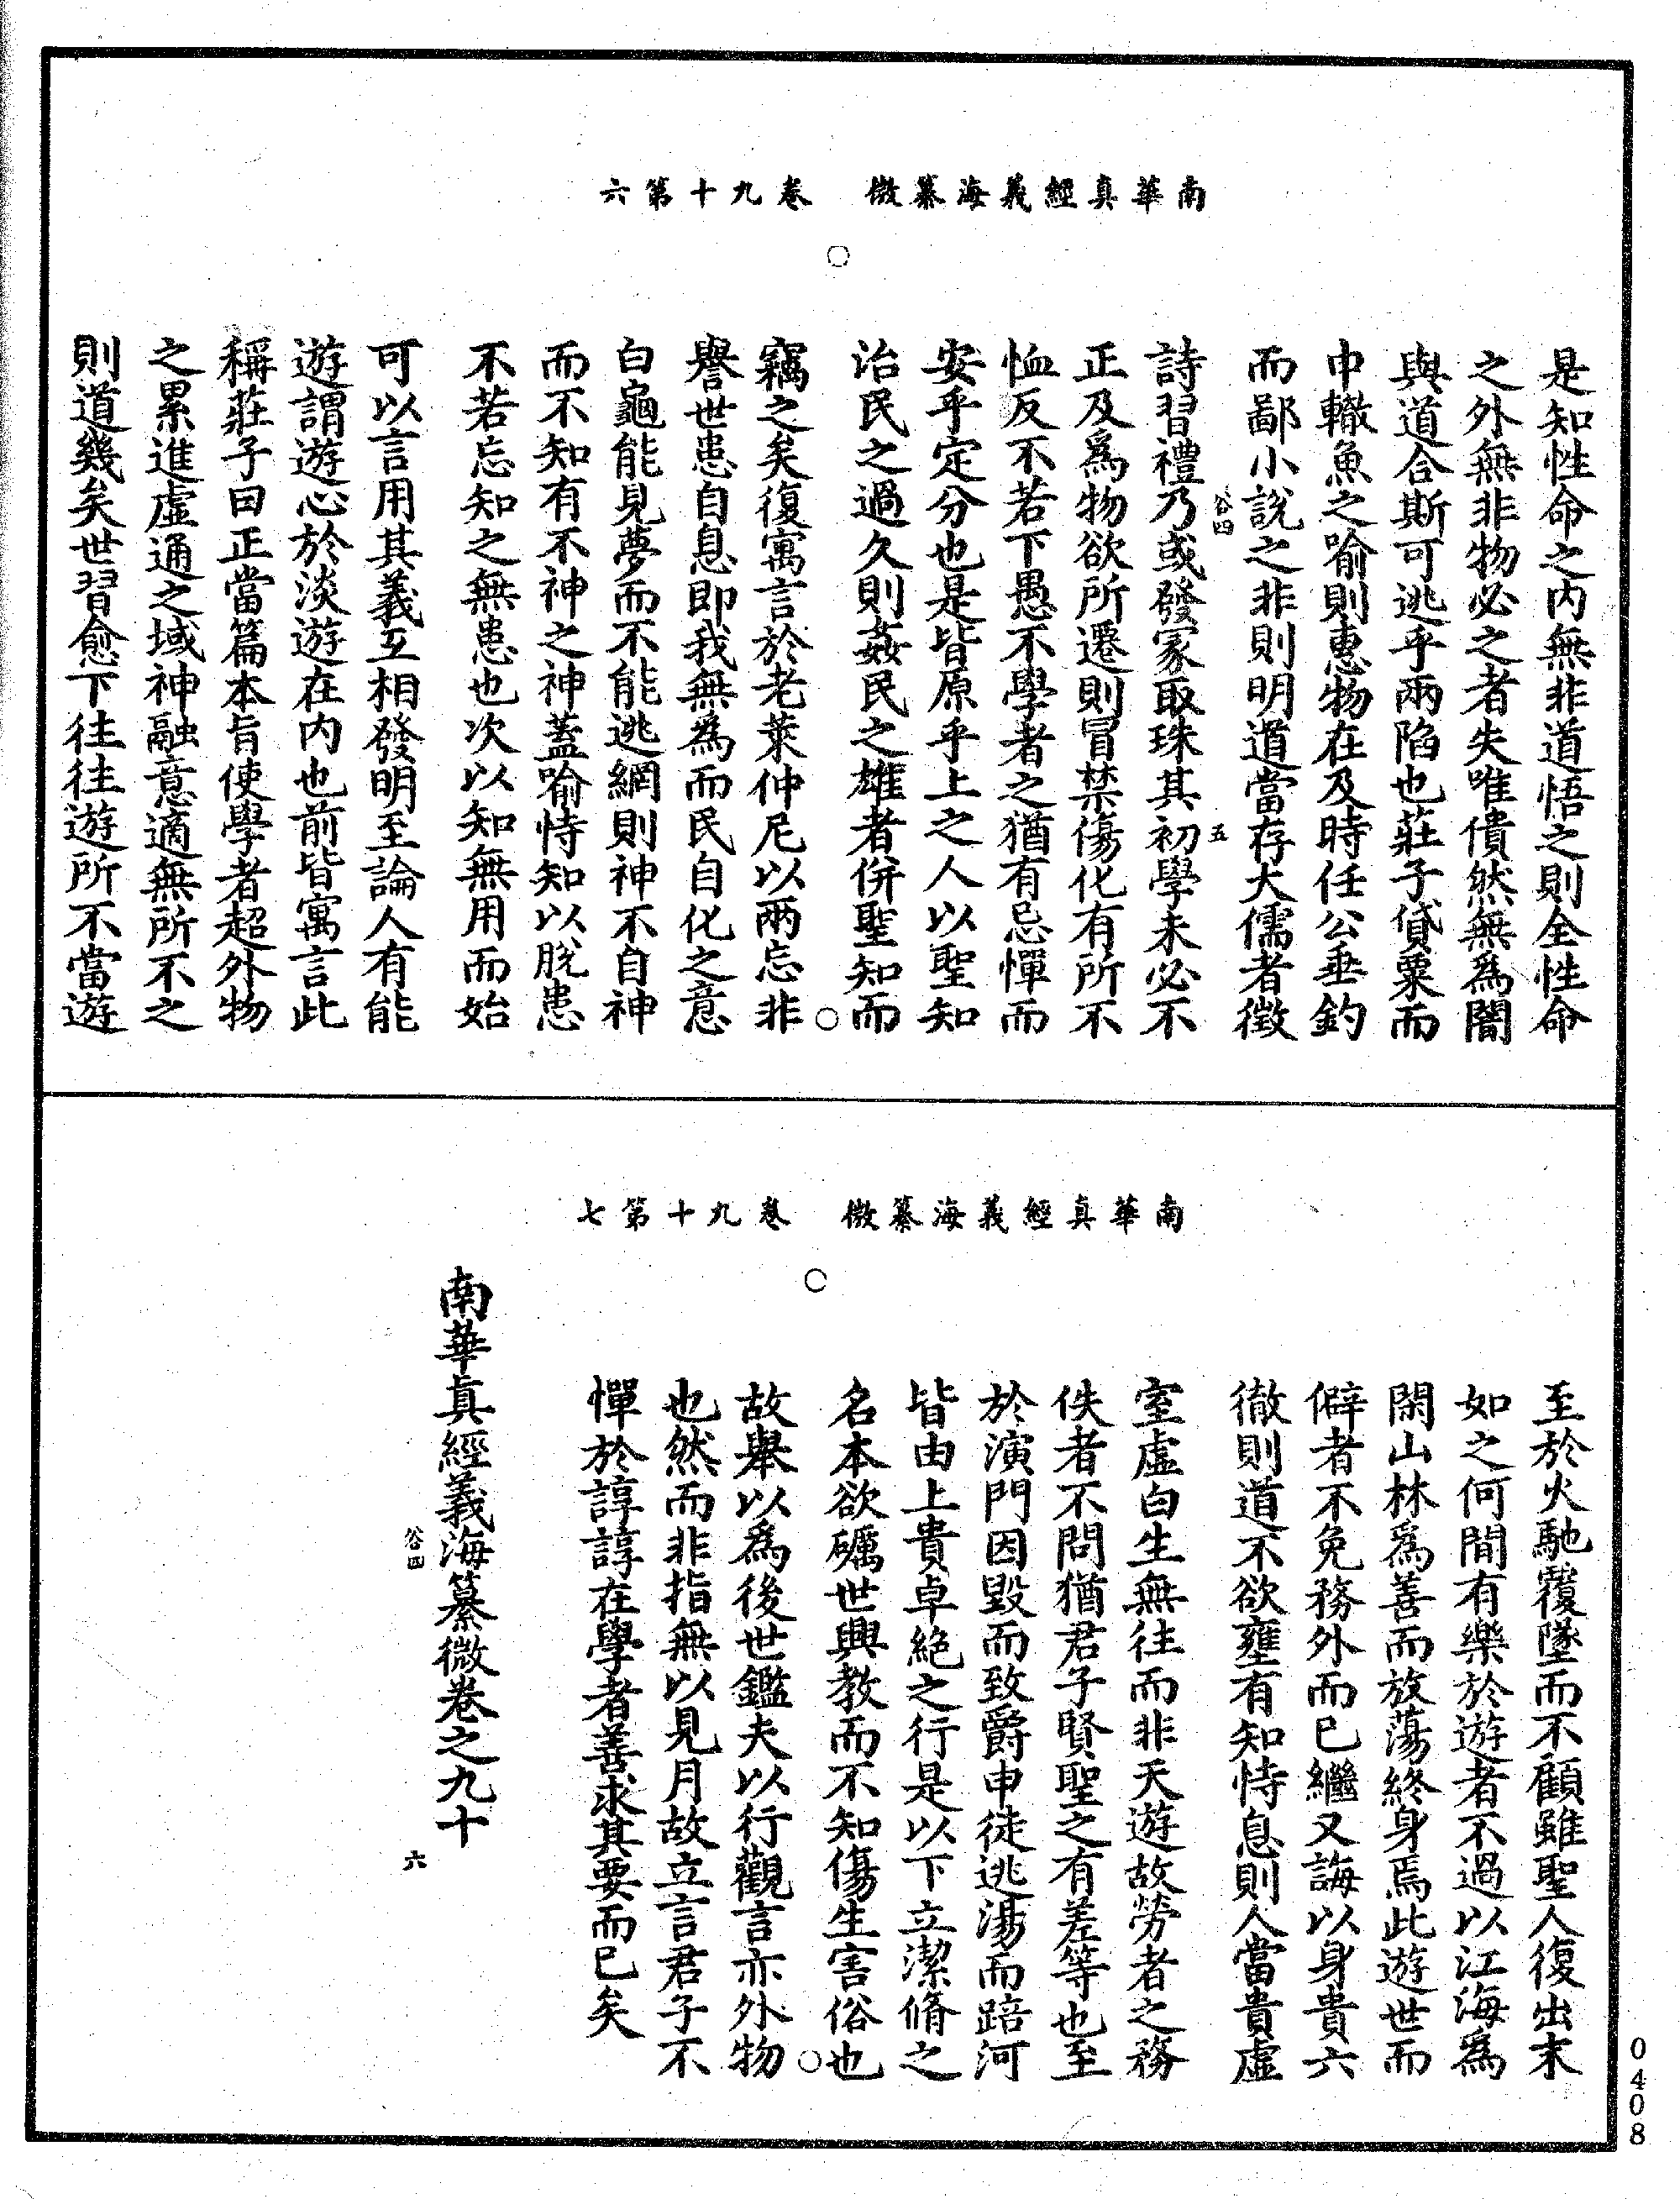 南華真經義海纂微　卷九十第六
是知性命之内無非道悟之則全性命
之外無非物必之者失唯僓然無為闇
與道合斯可逃乎兩陷也莊子貸粟而
中轍魚之喻則惠物在及時任公垂釣
而鄙小說之非則明道當存大儒者徵
詩習禮乃或發冢取珠其初學未必不
正及為物欲所遷則冒禁傷化有所不
恤反不若下愚不學者之猶有忌憚而
安乎定分也是皆原乎上之人以聖知
治民之過久則姦民之雄者併聖知而
竊之矣復寓言於老萊仲尼以兩忘非
譽世患自息即我無為而民自化之意
白龜能見夢而不能逃網則神不自神
而不知有不神之神蓋喻恃知以脫患
不若忘知之無患也次以知無用而始
可以言用其義互相發明至論人有能
遊謂遊心於淡遊在内也前皆寓言此
稱莊子曰正當篇本旨使學者超外物
之累進虛通之域神融意適無所不之
則道幾矣世習愈下往往遊所不當遊
俗四
五
南華真經義海纂微　卷九十第七
至於火馳覆墜而不顧雖聖人復出末
如之何間有樂於遊者不過以江海為
閑山林為善而放蕩終身焉此遊世而
僻者不免務外而已繼又誨以身貴六
徹則道不欲壅有知恃息則人當貴虛
室虛白生無往而非天遊故勞者之務
佚者不問猶君子賢聖之有差等也至
於演門因毀而致爵申徒逃湯而踣河
皆由上貴卓絕之行是以下立潔脩之
名本欲礪世興教而不知傷生害俗也
故舉以為後世鑑夫以行觀言亦外物
也然而非指無以見月故立言君子不
憚於諄諄在學者善求其要而已矣
南華真經義海纂微卷之九十
俗四
六
0408